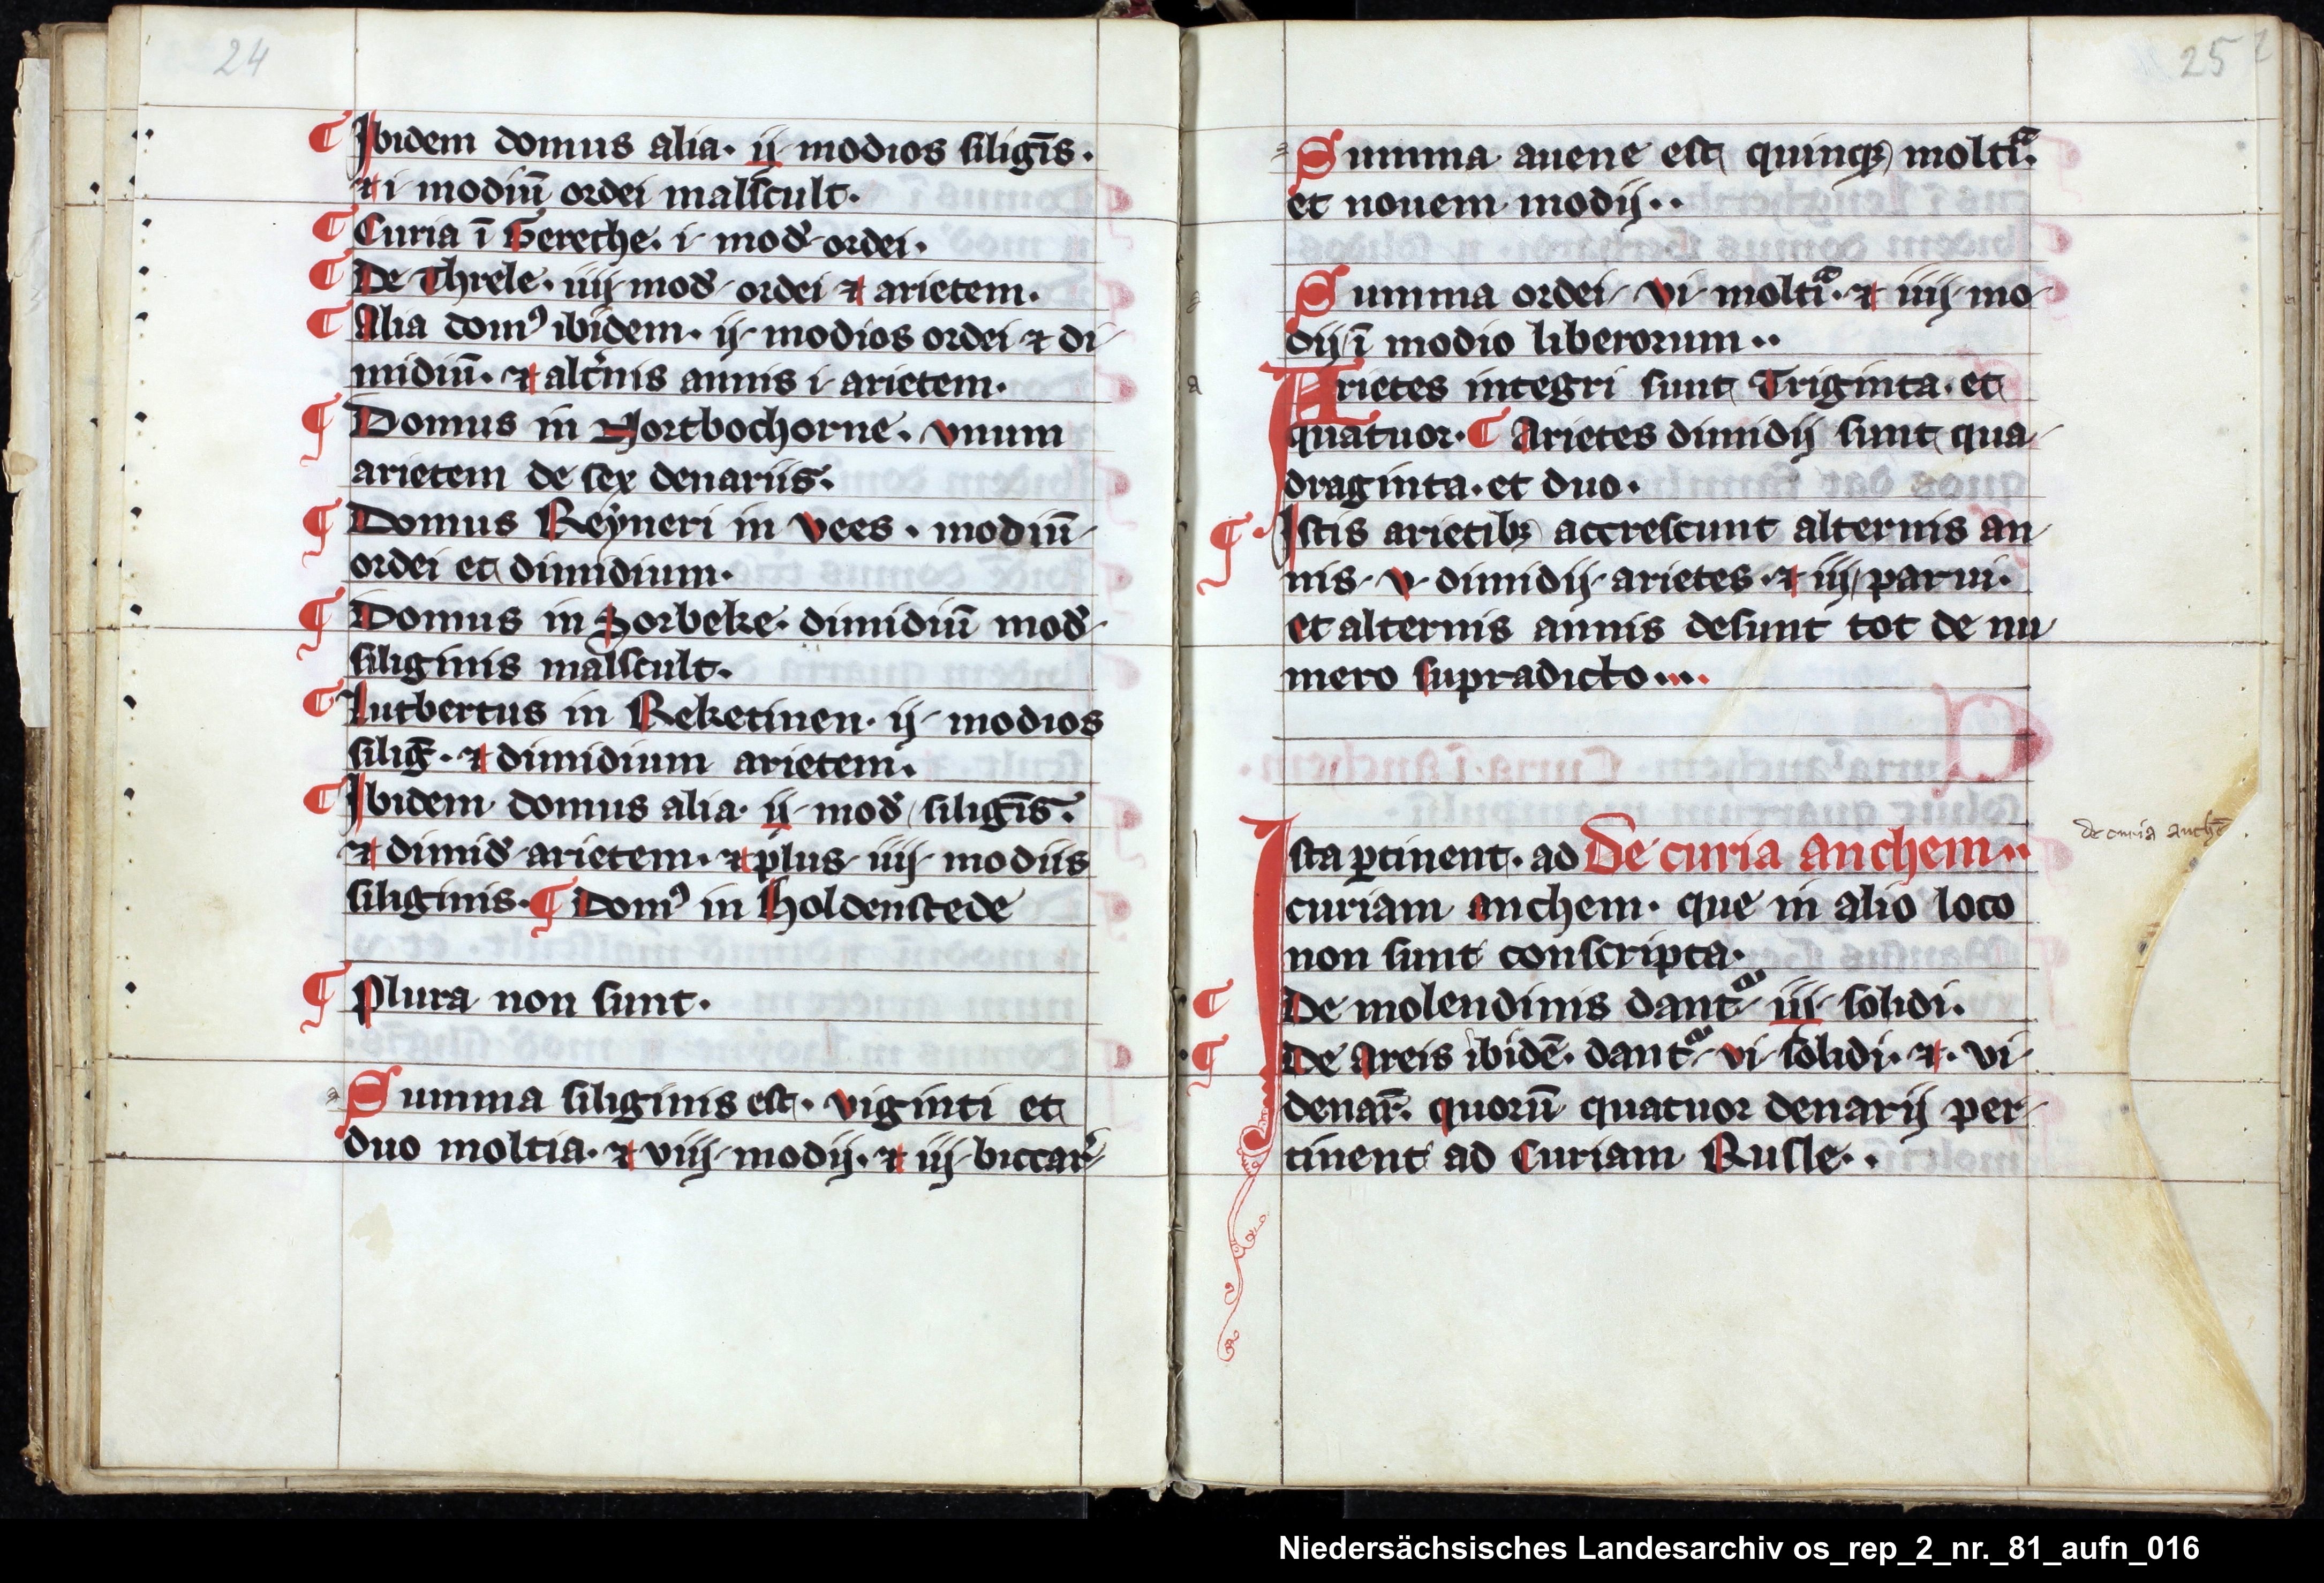 24
¶ Ibidem domus alia. ij modios siligīs.
⁊ i modiū ordei malscult.
¶ Curia ī Gerethe. i mod̄ ordei.
¶ De Threle. iiij mod̄ ordei ⁊ arietem.
¶ Alia domꝰ ibidem. ij modios ordei ⁊ di
midiū. ⁊ alt̓nis annis i arietem.
¶ Domus in Nortbochorne. vnum
arietem de sex denariis.
¶ Domus Reẏneri in vees. modiū
ordei et dimidium.
¶ Domus in Sorbeke. dimidiū mod̄
siliginis malscult.
¶ Lutbertus in Reketinen. ij modios
siliḡ. ⁊ dimidium arietem.
¶ Ibidem domus alia. ij mod̄ siligīs.
⁊ dimid̄ arietem. ⁊ plus iiij modiis
siliginis. ¶ Domꝰ in Holdenstede
¶ Plura non sunt.
Summa siliginis est. viginti et
duo moltia. ⁊ viiij modij. ⁊ iij biccar̓
25
Summa auene est quinqꝫ moltiᷓ.
et nouem modij..
Summa ordei vi moltiᷓ. ⁊ iiij mo
dij ī modio liberorum..
Arietes integri sunt Triginta. et
quatuor. ¶ Arietes dimidij sunt qua
draginta. et duo.
¶ Istis arietibꝫ accrescunt alternis an
nis v dimidij arietes. ⁊ iij parui.
et alternis annis desunt tot de nu
mero supradicto....
Ista ꝑtinent. ad De curia anchem..
de curia anchē
curiam anchem. que in alio loco
non sunt conscripta.
¶ De molendinis dantᷣ iij solidi.
¶ De Areis ibidē. dantᷣ vi solidi. ⁊. vi
denar̄. quorū quatuor denarij per
tinent ad Curiam Rusle..
Niedersächsisches Landesarchiv os_rep_2_nr._81_aufn_016